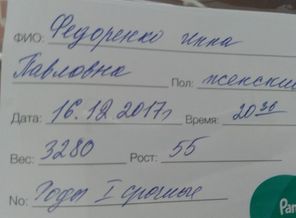 ФИО: Федоренко Инна
Павловна Пол: женский
Дата: 16.12.2017г Время: 20 30
Вес: 3280 Рост: 55
No: Роды I срочные
Pam